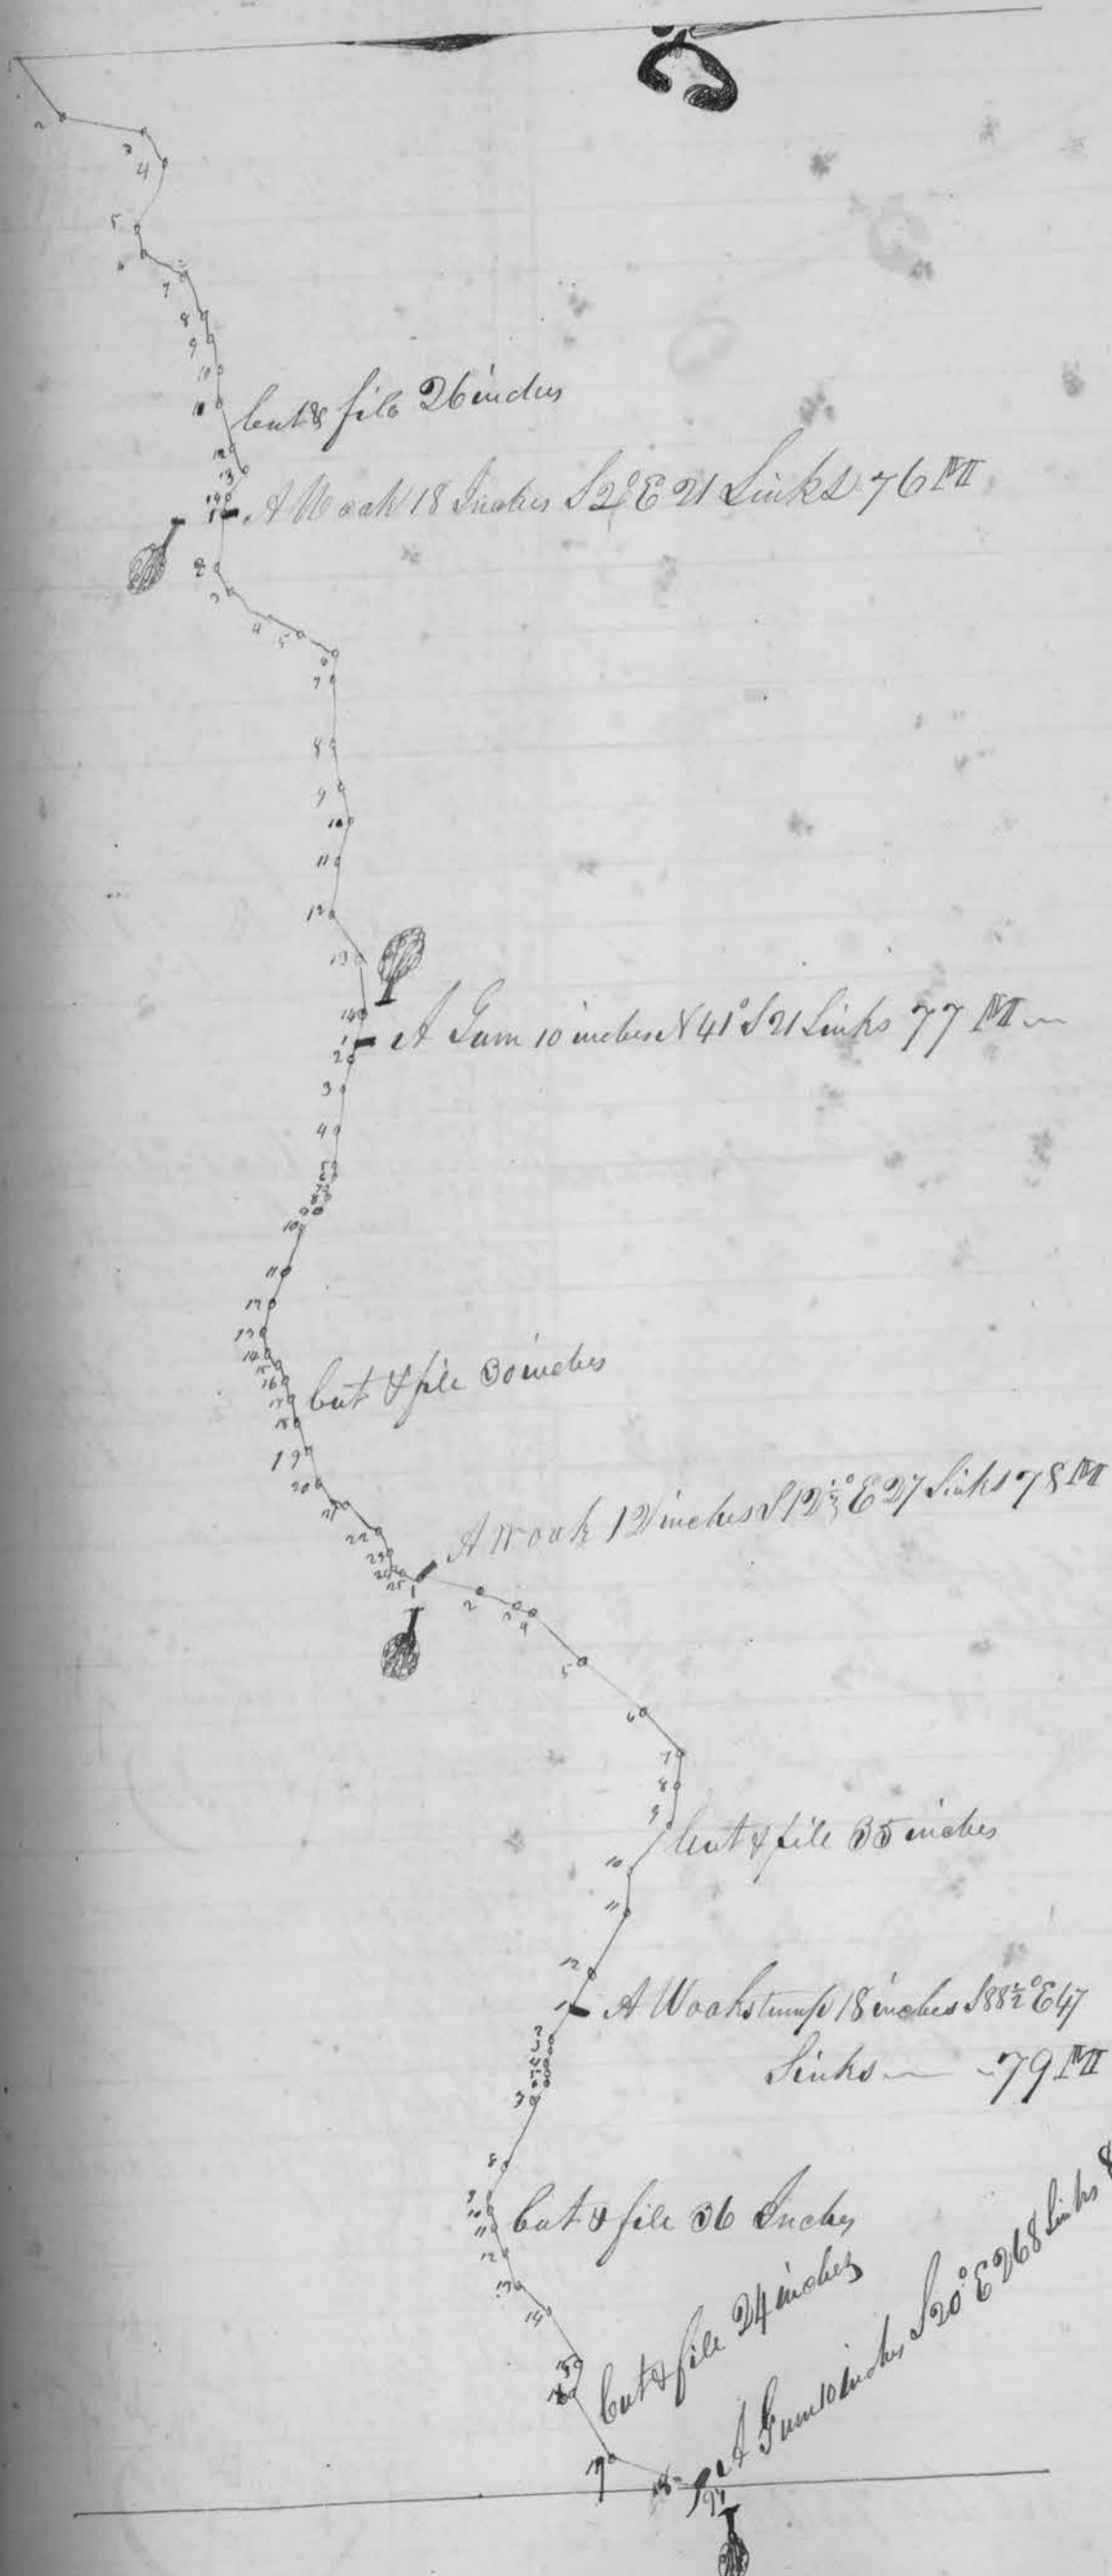 2
3
4
5
6
7
8
9
10
11
Cut & file 26 inches
12
13
14
1
A W oak 18 Inches S 2° E 21 Links 76 M
2
3
4
5
6
7
8
9
10
11
12
13
14
1
A Gum 10 inches N 41° S 21 Links 77 M
2
3
4
5
6
7
8
9
10
11
12
13
14
15
16
Cut & file 30 inches
17
18
19
20
21
22
23
24
25
A W oak 12 inches S 12½° E 27 Links 78 M
1
2
3
4
5
6
7
8
9
Cut & file 35 inches
10
11
12
1
A W oak stump 18 inches S 88½° E 47
Links — 79 M
2
3
4
5
6
7
8
9
10
Cut & file 36 Inches
11
12
13
14
15
16
Cut & file 24 inches
17
18
A Gum 10 Inches S 20° E 268 Links 8